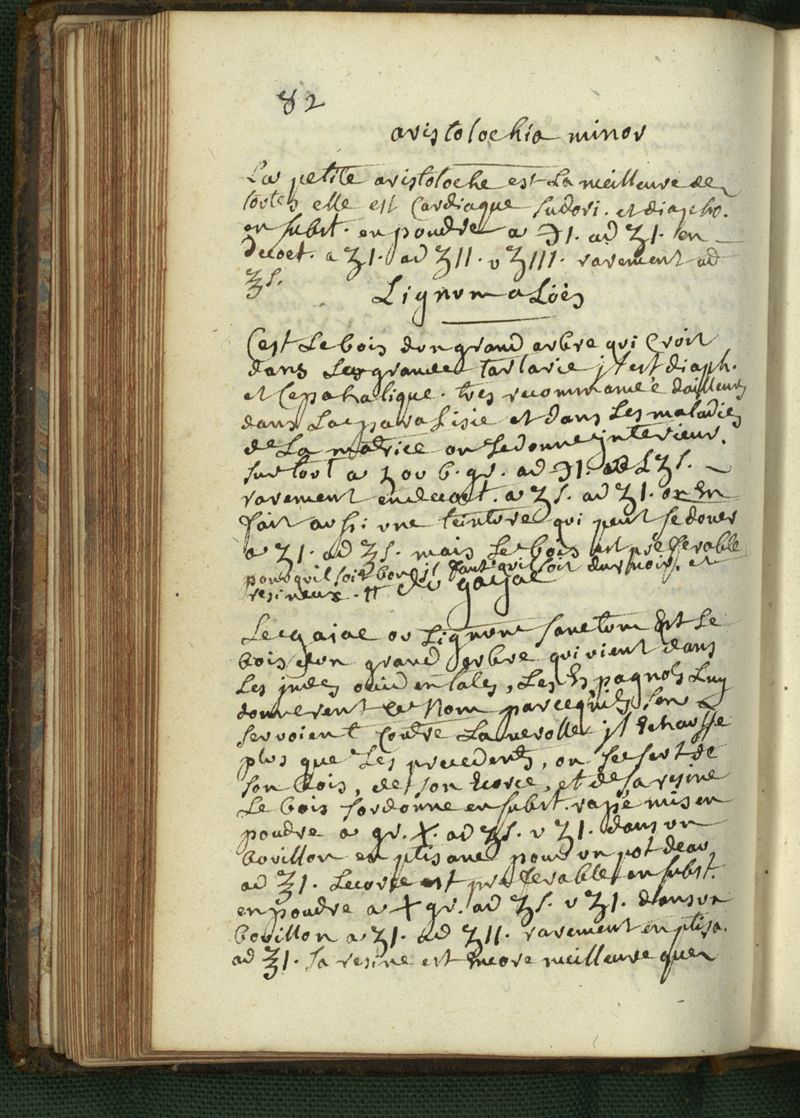 82
aristolochia minor
La petite aristoloche est La meilleure de
toutes elle est Cardiaque sudori. et diapho.
en subst. en poudre a ℈1. ad ʒ1. en
Decoct. a ʒ1. ad ʒ11. v ʒ111. rarement ad
℥s.
Lignom aLoës
C'est Le bois d'un grand arbre qui Croit
dans La grande tartarie jl est diaph.
et Cephalique. tres recommamé dailleurs
dans La paraLisie et dans Les maladies
de La matrice on Le donne jnterieur.
surtout a 6. gr. ad ℈1. ad ʒs.
rarement en decoct. a ʒs. ad ʒ1. on En
fait aussi vne teinture qui peut se doner
a ʒ1. ad ℥s. mais Le bois est preferable
pourquil soit bon jl faut quil soit dur noir. et
resineux. # du gayac
Le gaiac ou Lignom sanctom Est Le
bois d'un grand arbre qui vient dans
Les jndes occidentales, Les Espagnols Luy
donnerent ce Nom parcequils sen
servoient Contre La verolle jl Echauffe
plus que Les precedents, on se sert de
son bois, de son Ecorce, et de sa resine
Le bois sordonne en subst. rapé mis en
poudre a gr. X. ad ʒs. v ʒ1. dans vn
bouillon en ptisane pour vn pot deau
ad ℥1. Lecorce est preferable en subst.
en poudre a X gr. ad ʒs. v ʒ1. dans vn
bouillon a ʒ1. ad ʒ11. rarement en ptisa.
ad ℥1. sa resine est Encore meilleure que